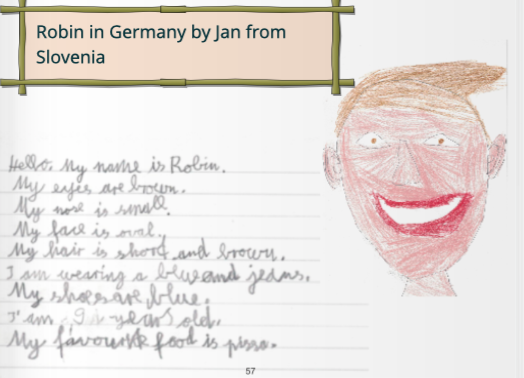 Robin in Germany by Jan from
Slovenia
Hello. My name is Robin.
My eyes are brown.
My nose is small.
My face is oval.
My hair is short and brown.
I am wearing a blue and jeans.
My shoes are blue.
I am 9 years old.
My favourite food is pizza.
57